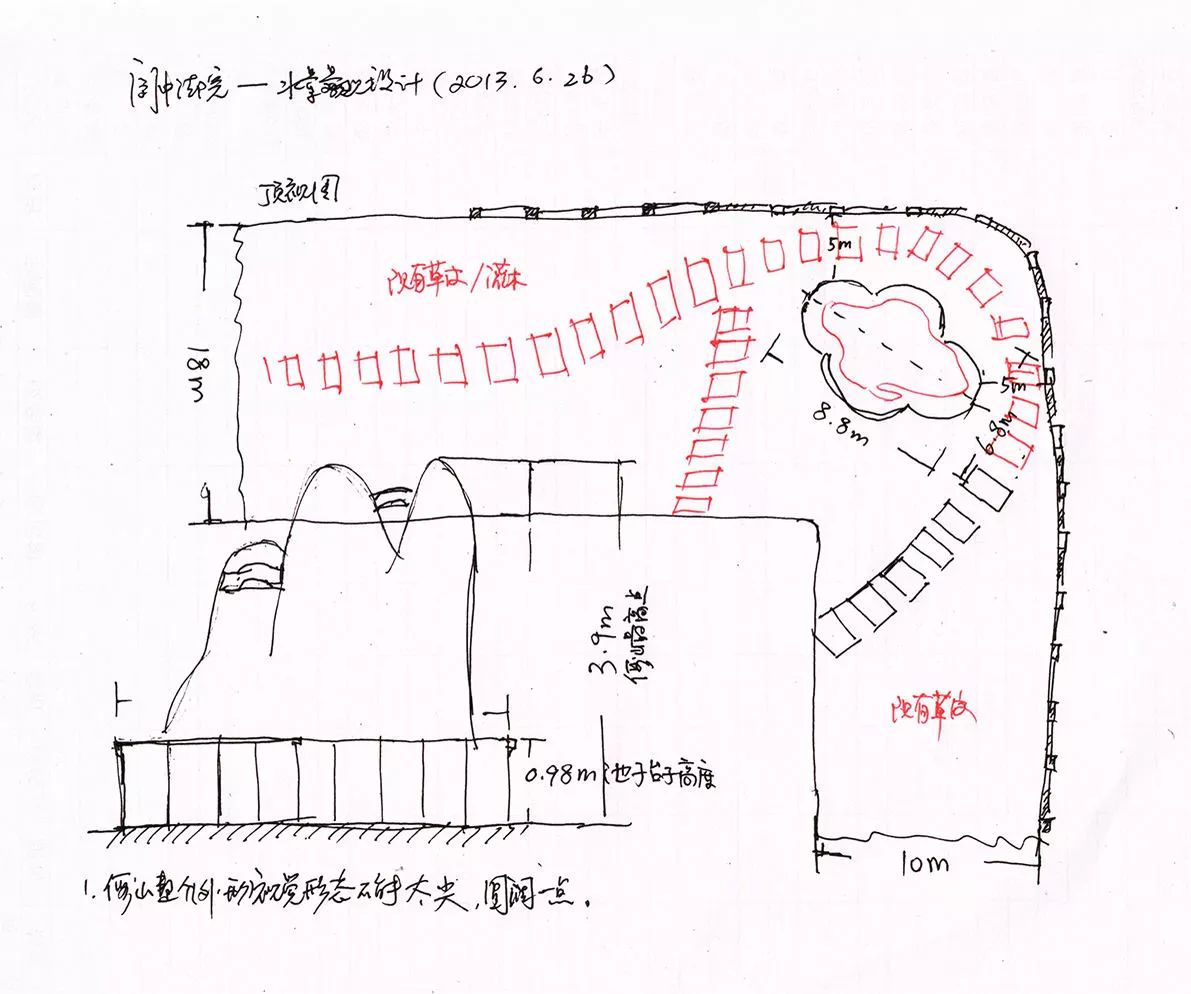 阆中法院 — 水景观设计 (2013.6.26)
顶视图
5m
现有草皮/灌木
18m
5m
8.8m
6.8m
3.9m
现有草皮
0.98m 池子台子高度
10m
1. 假山整个外形视觉形态不能太尖，圆润一点。